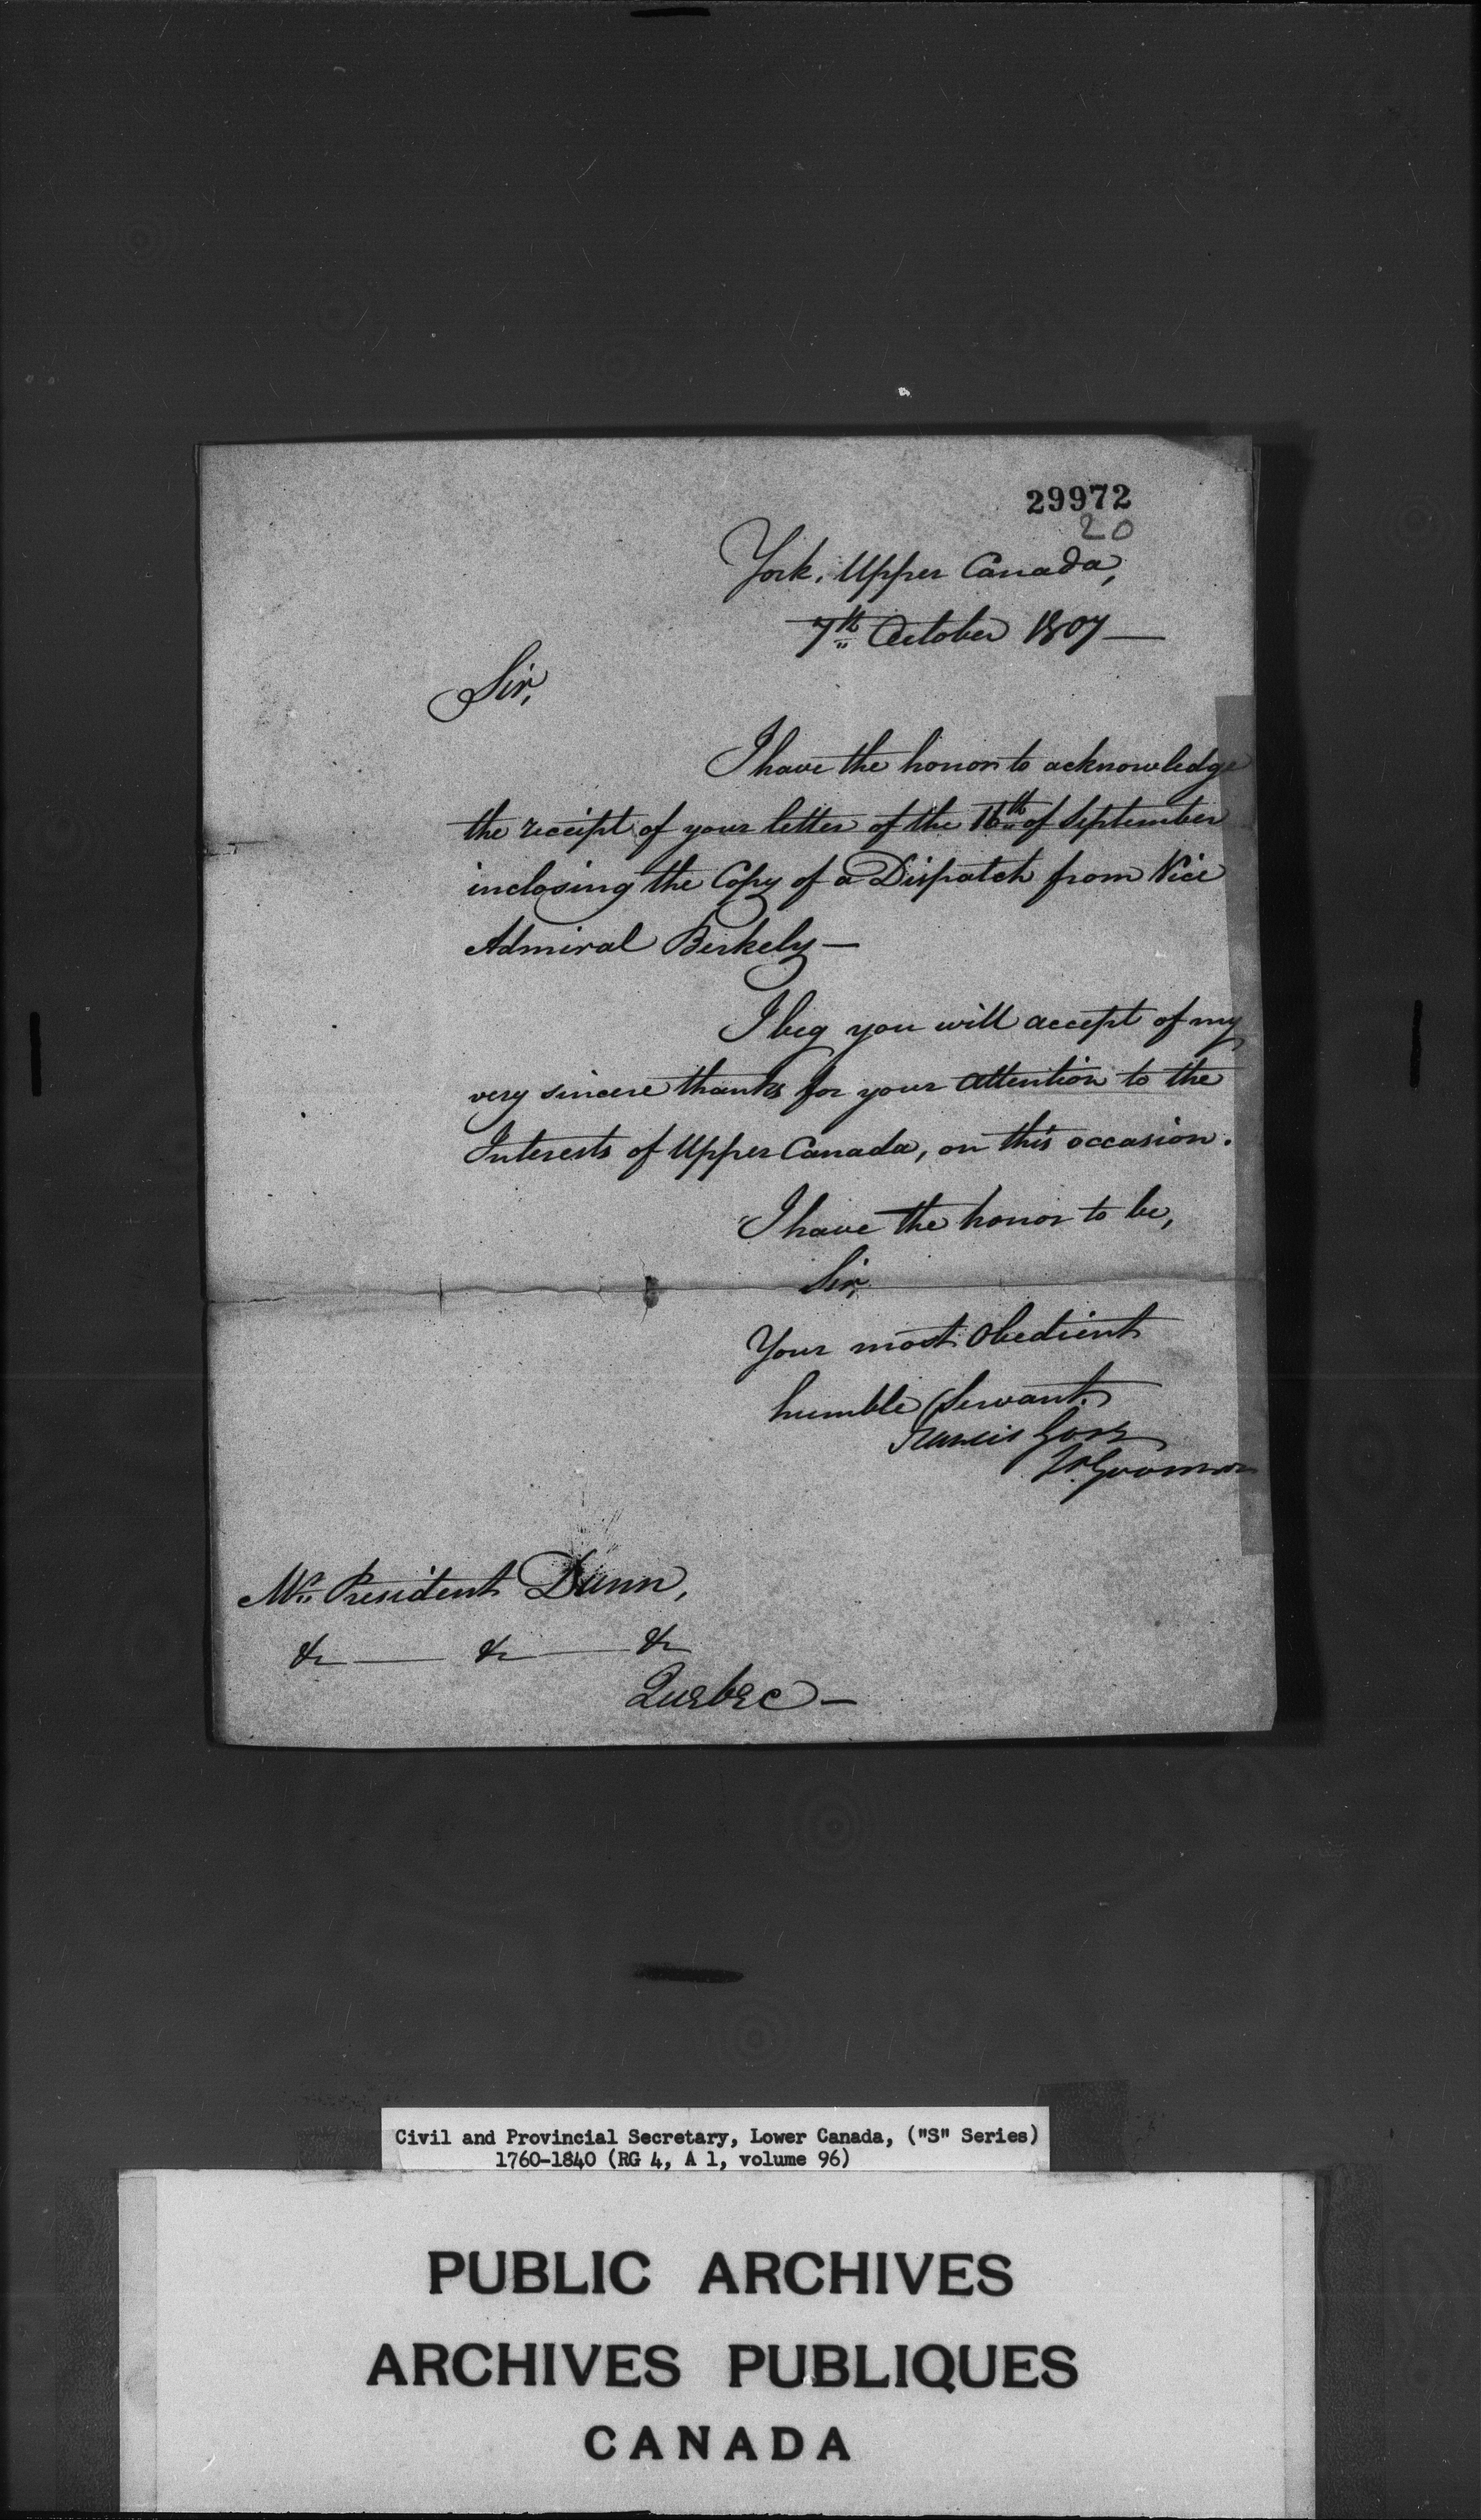 29972
20
York, Upper Canada,
7th October 1807 —
Sir,
I have the honor to acknowledge
the receipt of your letter of the 16th of September
inclosing the Copy of a Dispatch from Vice
Admiral Berkely —
I beg you will accept of my
very sincere thanks for your attention to the
Interests of Upper Canada, on this occasion.
I have the honor to be,
Sir,
Your most Obedient
humble Servant.
Francis Gore
Lt Governor
Mr. President Dunn,
&c — &c — &c
Quebec —
Civil and Provincial Secretary, Lower Canada, ("S" Series)
1760-1840 (RG 4, A 1, volume 96)
PUBLIC ARCHIVES
ARCHIVES PUBLIQUES
CANADA